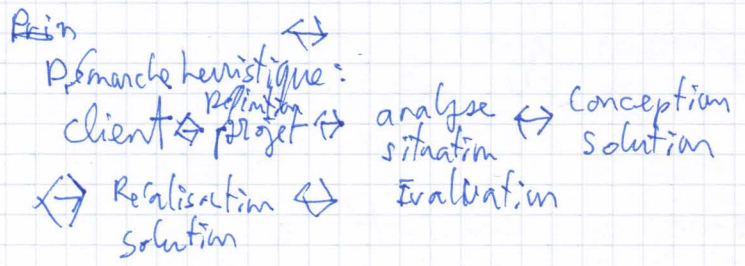 Prin ↔
Démarche heuristique :
client ↔ Définition projet ↔ analyse situation ↔ Conception solution
↔ Réalisation solution ↔ Evaluation